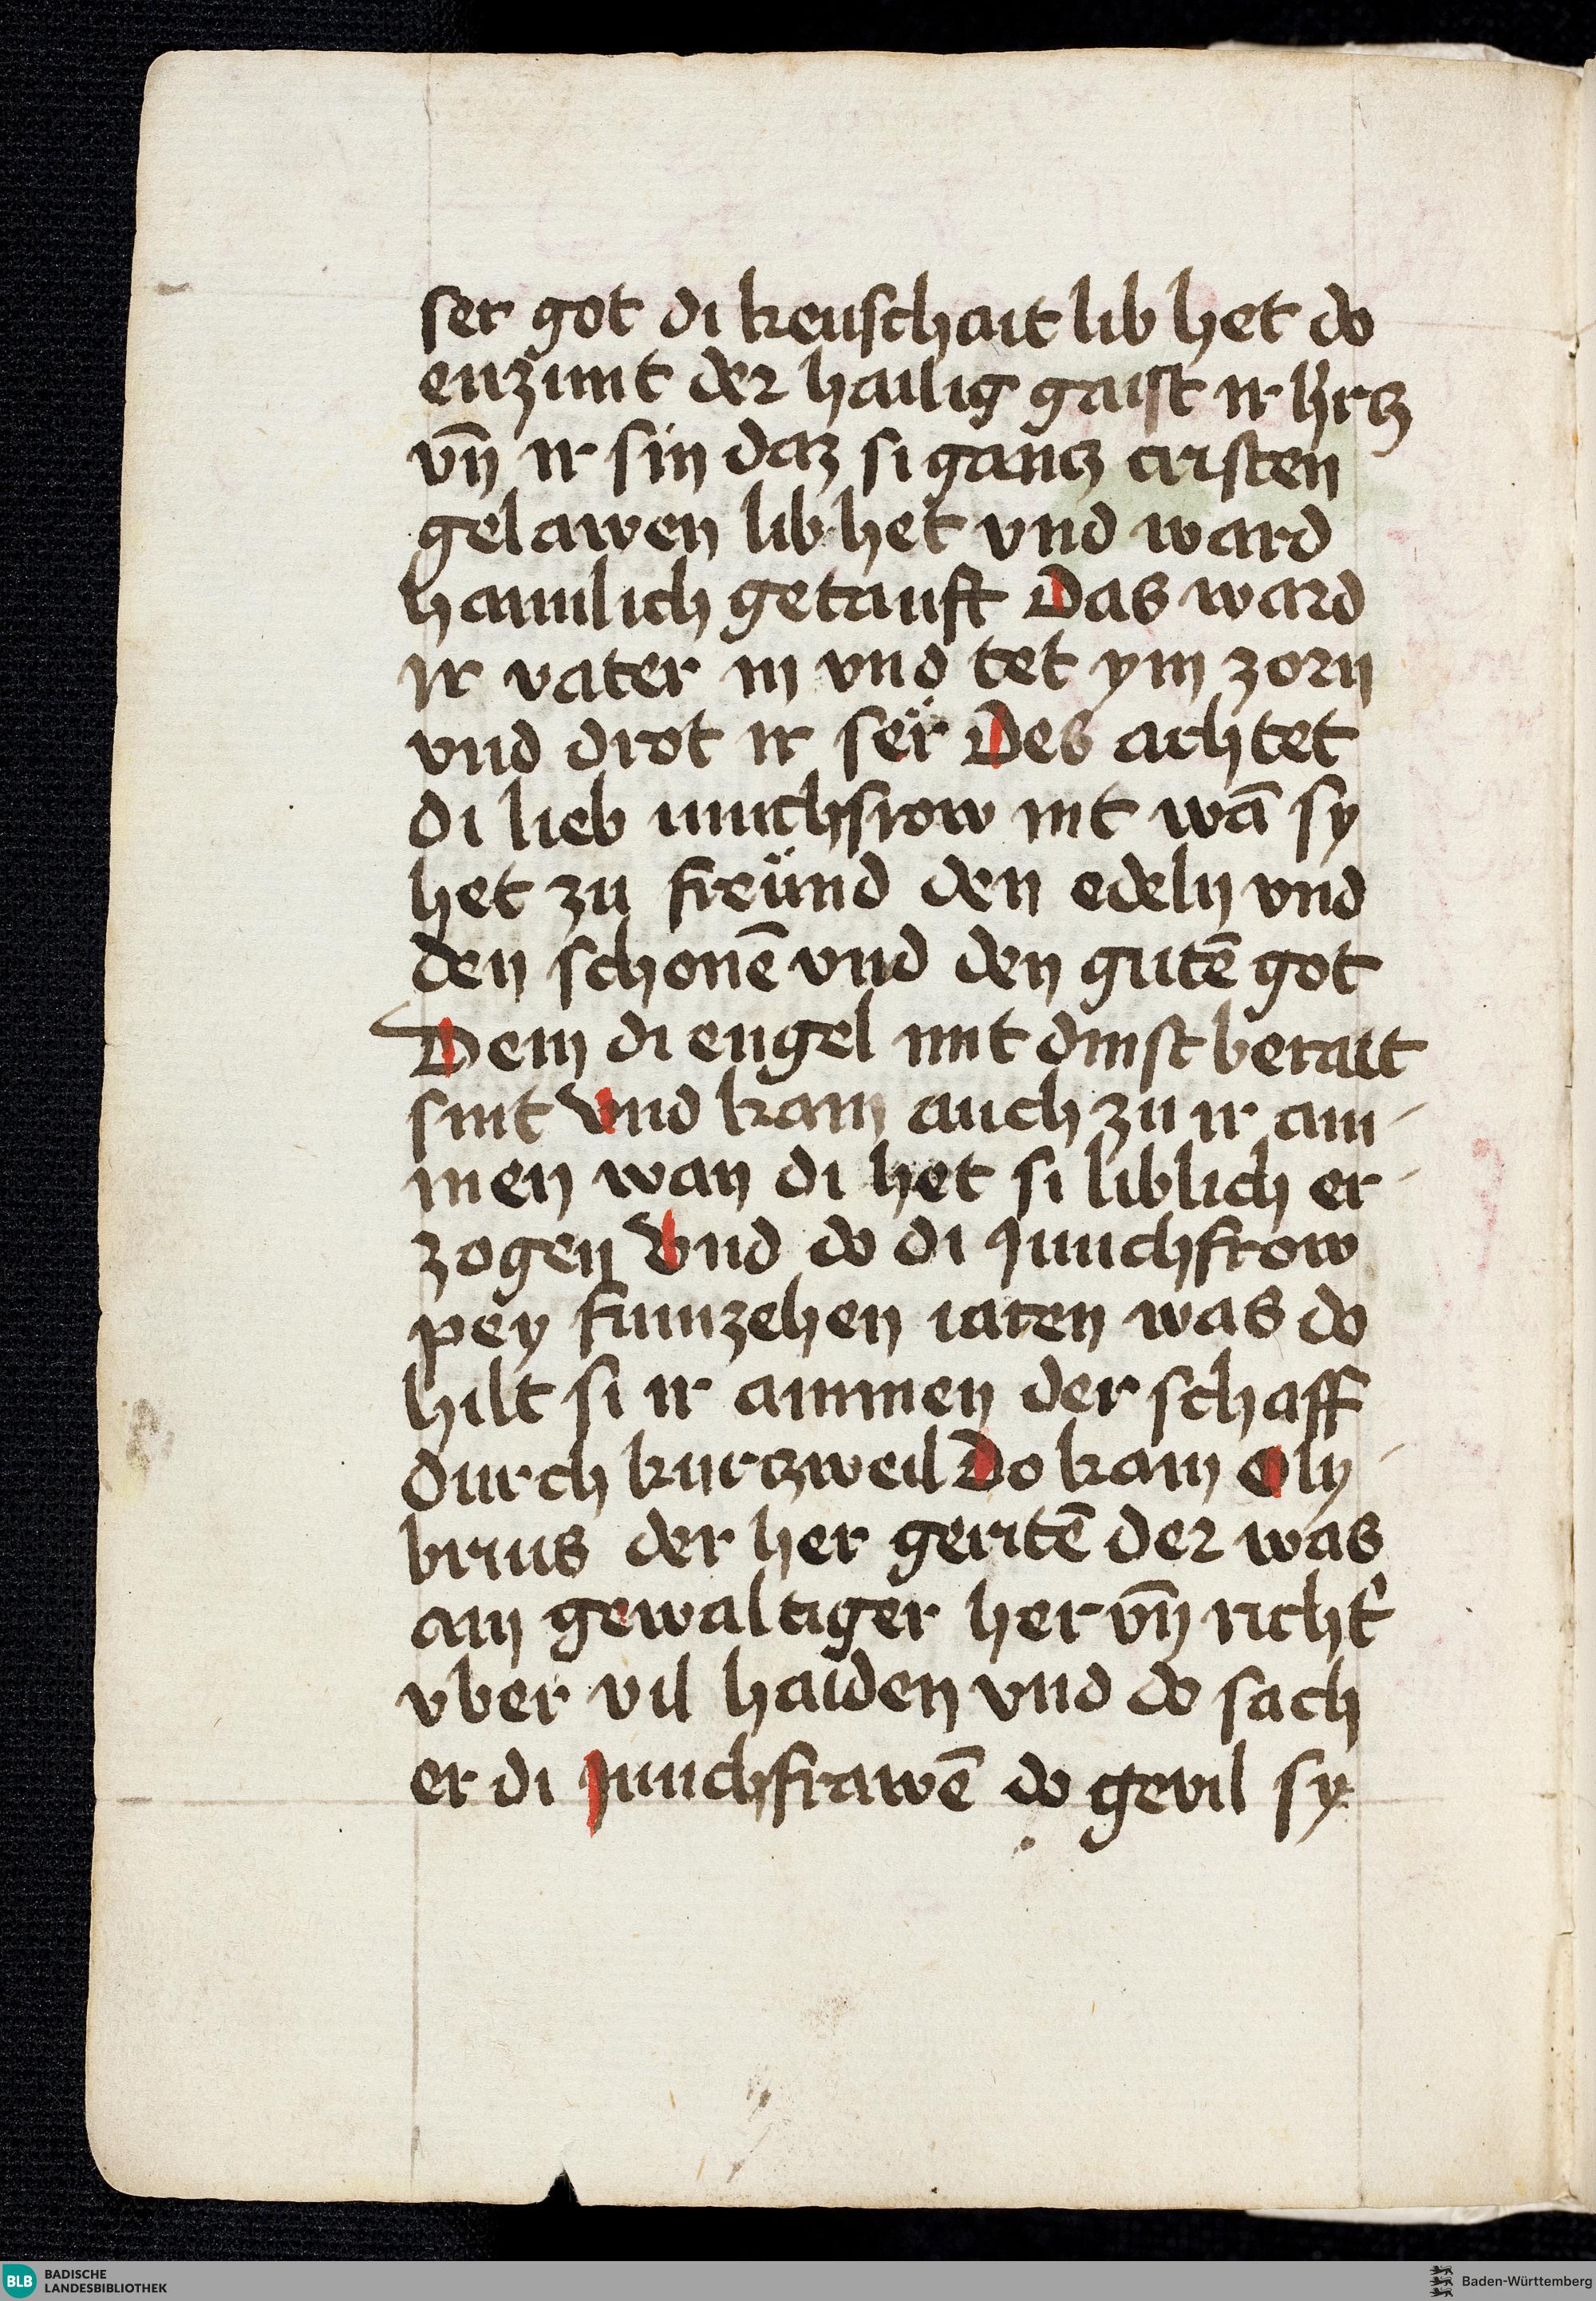 ser got di keuschait lib het do
enzunt der hailig gaist ir hercz
vn̄ ir sin daz si gancz cristen
gelawen lib het vnd ward
haimlich getauft Das ward
ir vater in vnd tet ym zorn
vnd drot ir ser Des achtet
di lieb iunchfrow nit wā sy
het zu freünd den edeln vnd
den schonē vnd den gutē got
Dem di engel mit dinst berait
sint Vnd kam auch zu ir am-
men wan di het si liblich er-
zogen Vnd do di Junchfrow
pey funzehen iaren was do
hilt si ir ammen der schaff
durch kurczweil Do kam Oly-
brius der her geritē der was
ain gewaltiger her vn̄ richt'
vber vil haiden vnd do sach
er di Junchfrawē do gevil sy
BLB BADISCHE
LANDESBIBLIOTHEK
Baden-Württemberg